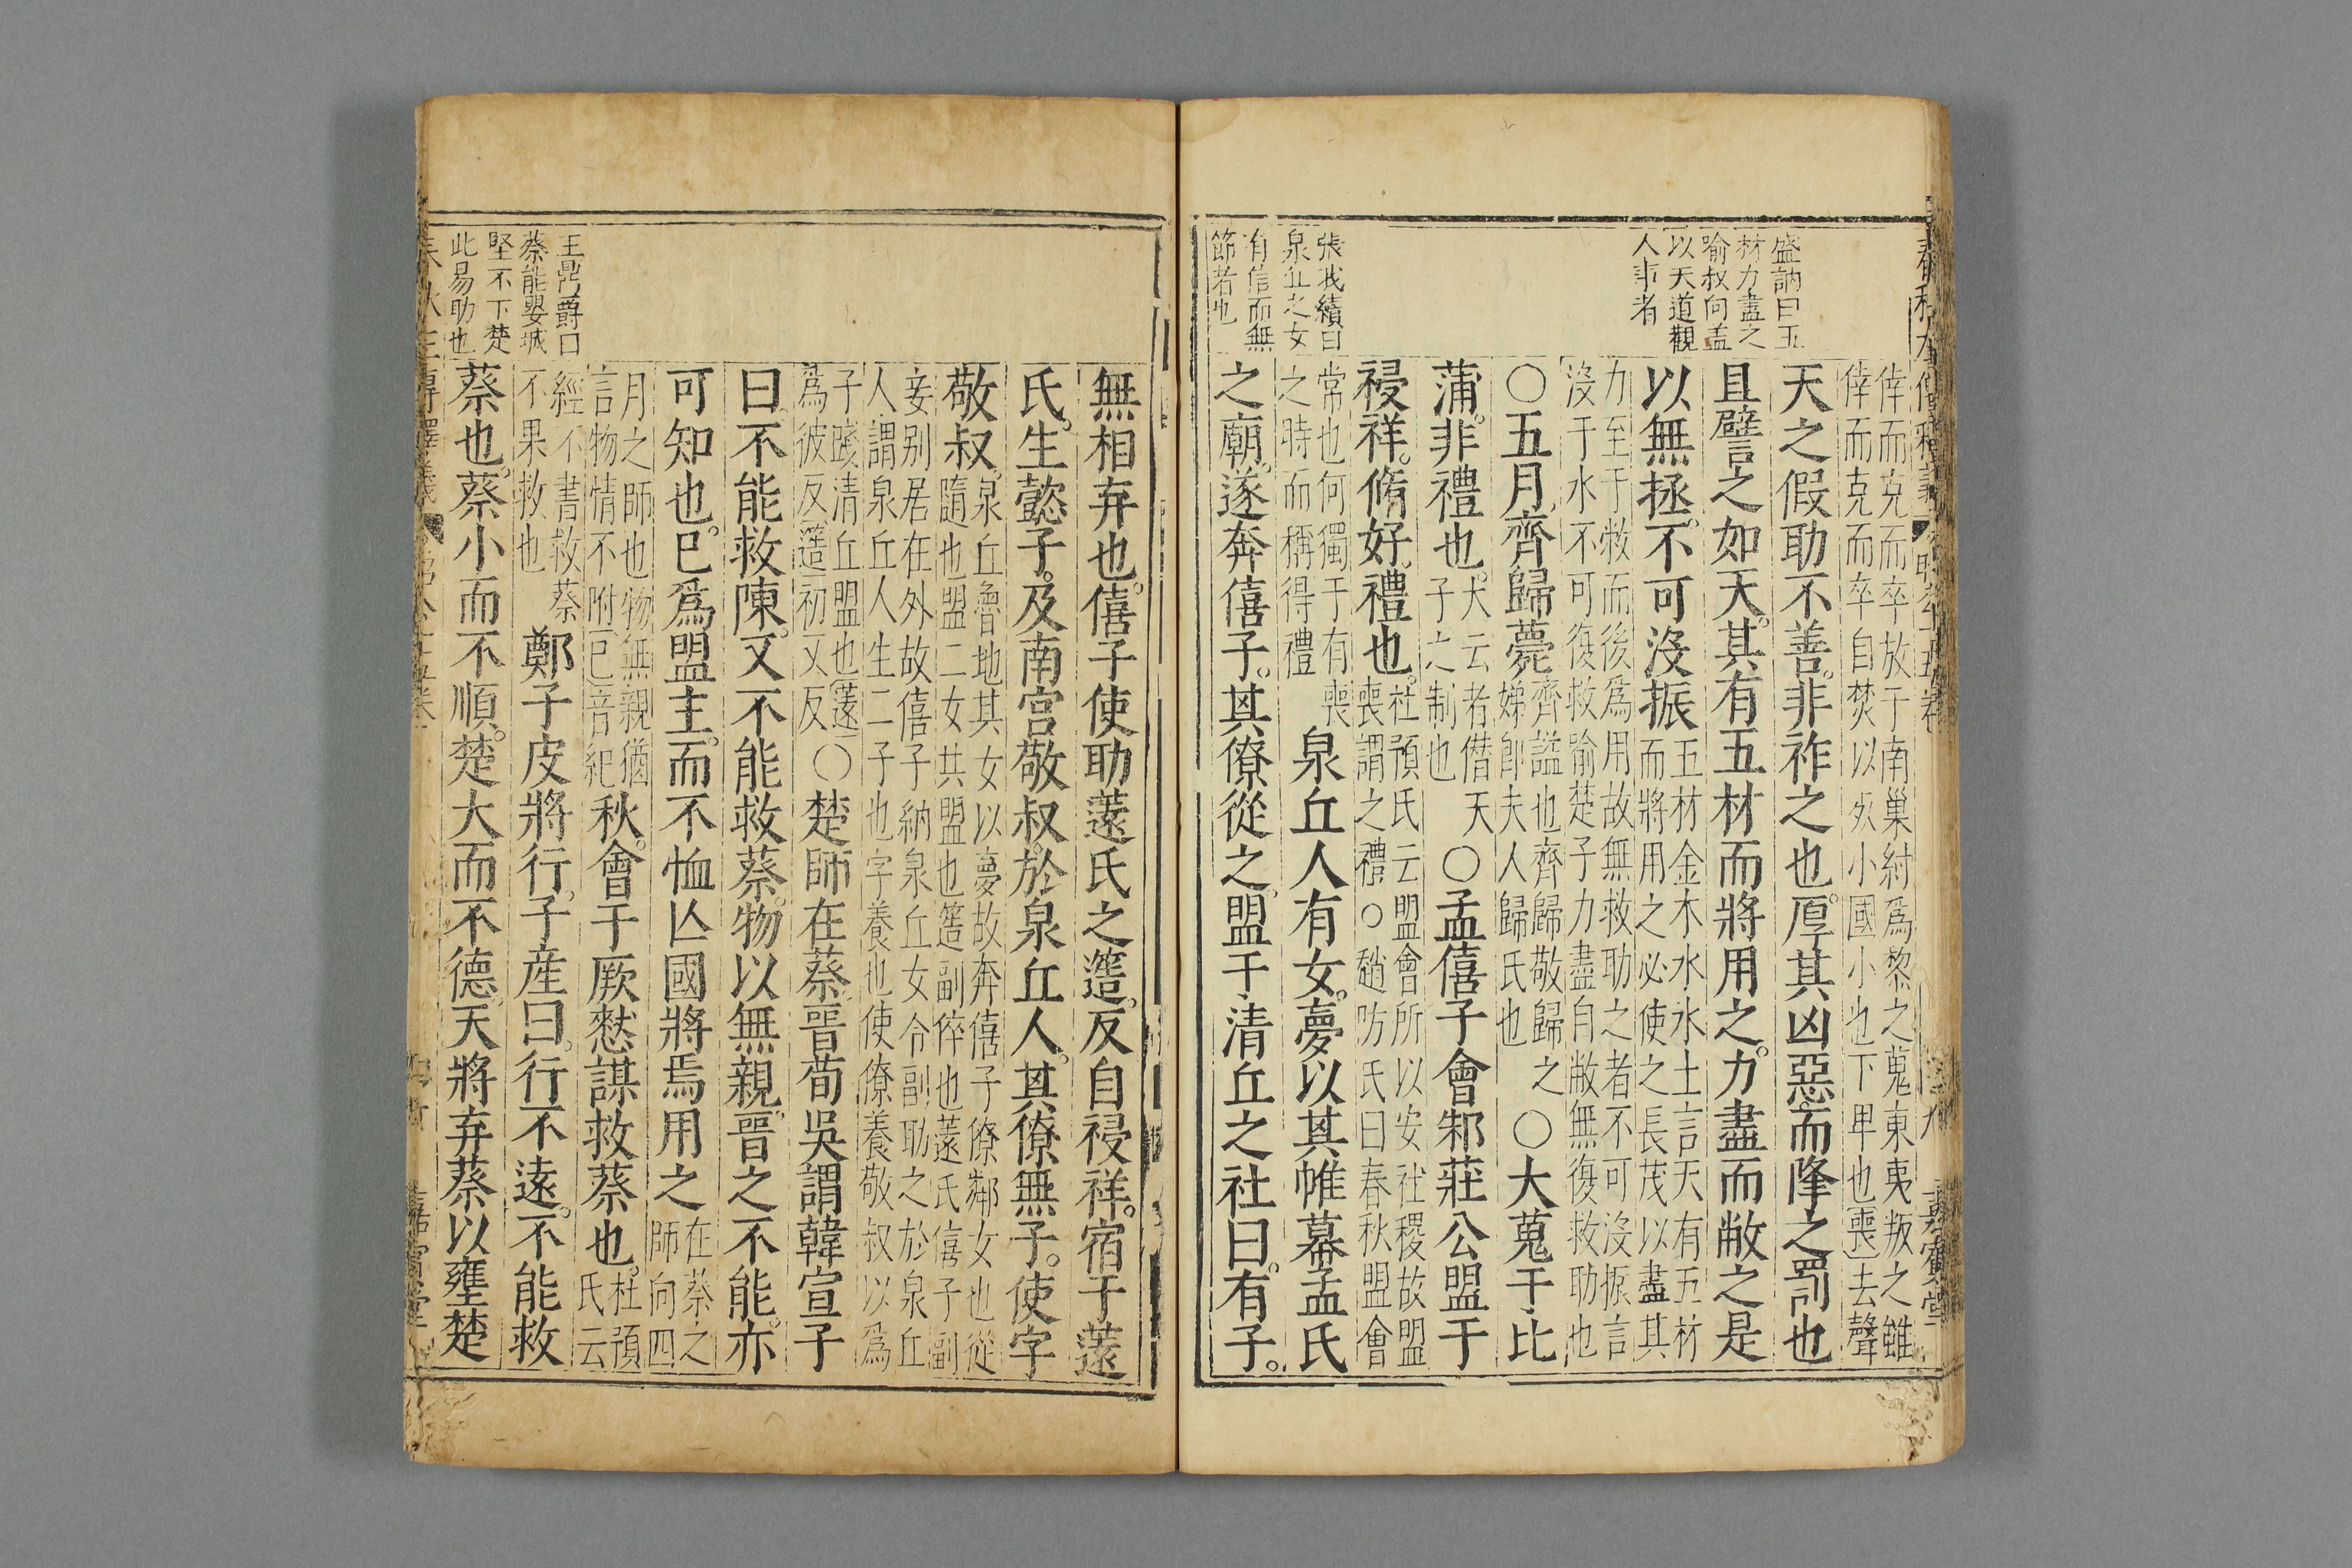 春秋左傳釋義 昭公十五卷 嘉賓堂
盛訥曰五
材力盡之
喻叔向孟
以天道觀
人事者
張我續曰
泉丘之女
有信而無
節者也
倖而克而卒放于南巢紂爲黎之蒐東夷叛之雖
倖而克而卒自焚以灰小國小也下卑也喪去聲
天之假助不善。非祚之也。厚其凶惡。而降之罰也
且譬之如天。其有五材而將用之。力盡而敝之是
以無拯。不可沒振
五材金木水水土言天有五材
而將用之必使之長茂以盡其
力至于敝而後爲用故無救助之者不可沒振言
沒于水不可復救喻楚子力盡自敝無復救助也
〇五月。齊歸薨
齊諡也齊歸敬歸之
娣卽夫人歸氏也
〇大蒐于比
蒲。非禮也。
大云者僣天
子之制也
〇孟僖子會邾莊公盟于
祲祥。脩好。禮也。
杜預氏云盟會所以安社稷故盟
喪謂之禮○趙汸氏曰春秋盟會
常也何獨于有喪
之時而稱得禮
泉丘人有女。夢以其帷幕孟氏
之廟。遂奔僖子。其僚從之。盟于清丘之社曰。有子。
王鼎爵曰
蔡能嬰城
堅不下楚
此易助也
無相弃也。僖子使助薳氏之簉。反自祲祥。宿于薳
氏。生懿子。及南宮敬叔。於泉丘人。其僚無子。使字
敬叔。
泉丘魯地其女以夢故奔僖子僚鄰女也從
隨也盟二女共盟也簉副倅也薳氏僖子副
妾别居在外故僖子納泉丘女令副助之於泉丘
人謂泉丘人生二子也字養也使僚養敬叔以爲
子踐清丘盟也薳
爲彼反簉初又反
〇楚師在蔡。晉荀吳謂韓宣子
曰。不能救陳。又不能救蔡。物以無親。晉之不能。亦
可知也。已爲盟主。而不恤亾國將焉用之
在蔡之
師向四
月之師也物無親猶
言物情不附已音紀
秋。會于厥憖謀救蔡也。
杜預
氏云
經不書救蔡
不果救也
鄭子皮將行。子産曰。行不遠。不能救
蔡也。蔡小而不順。楚大而不德。天將弃蔡以壅楚